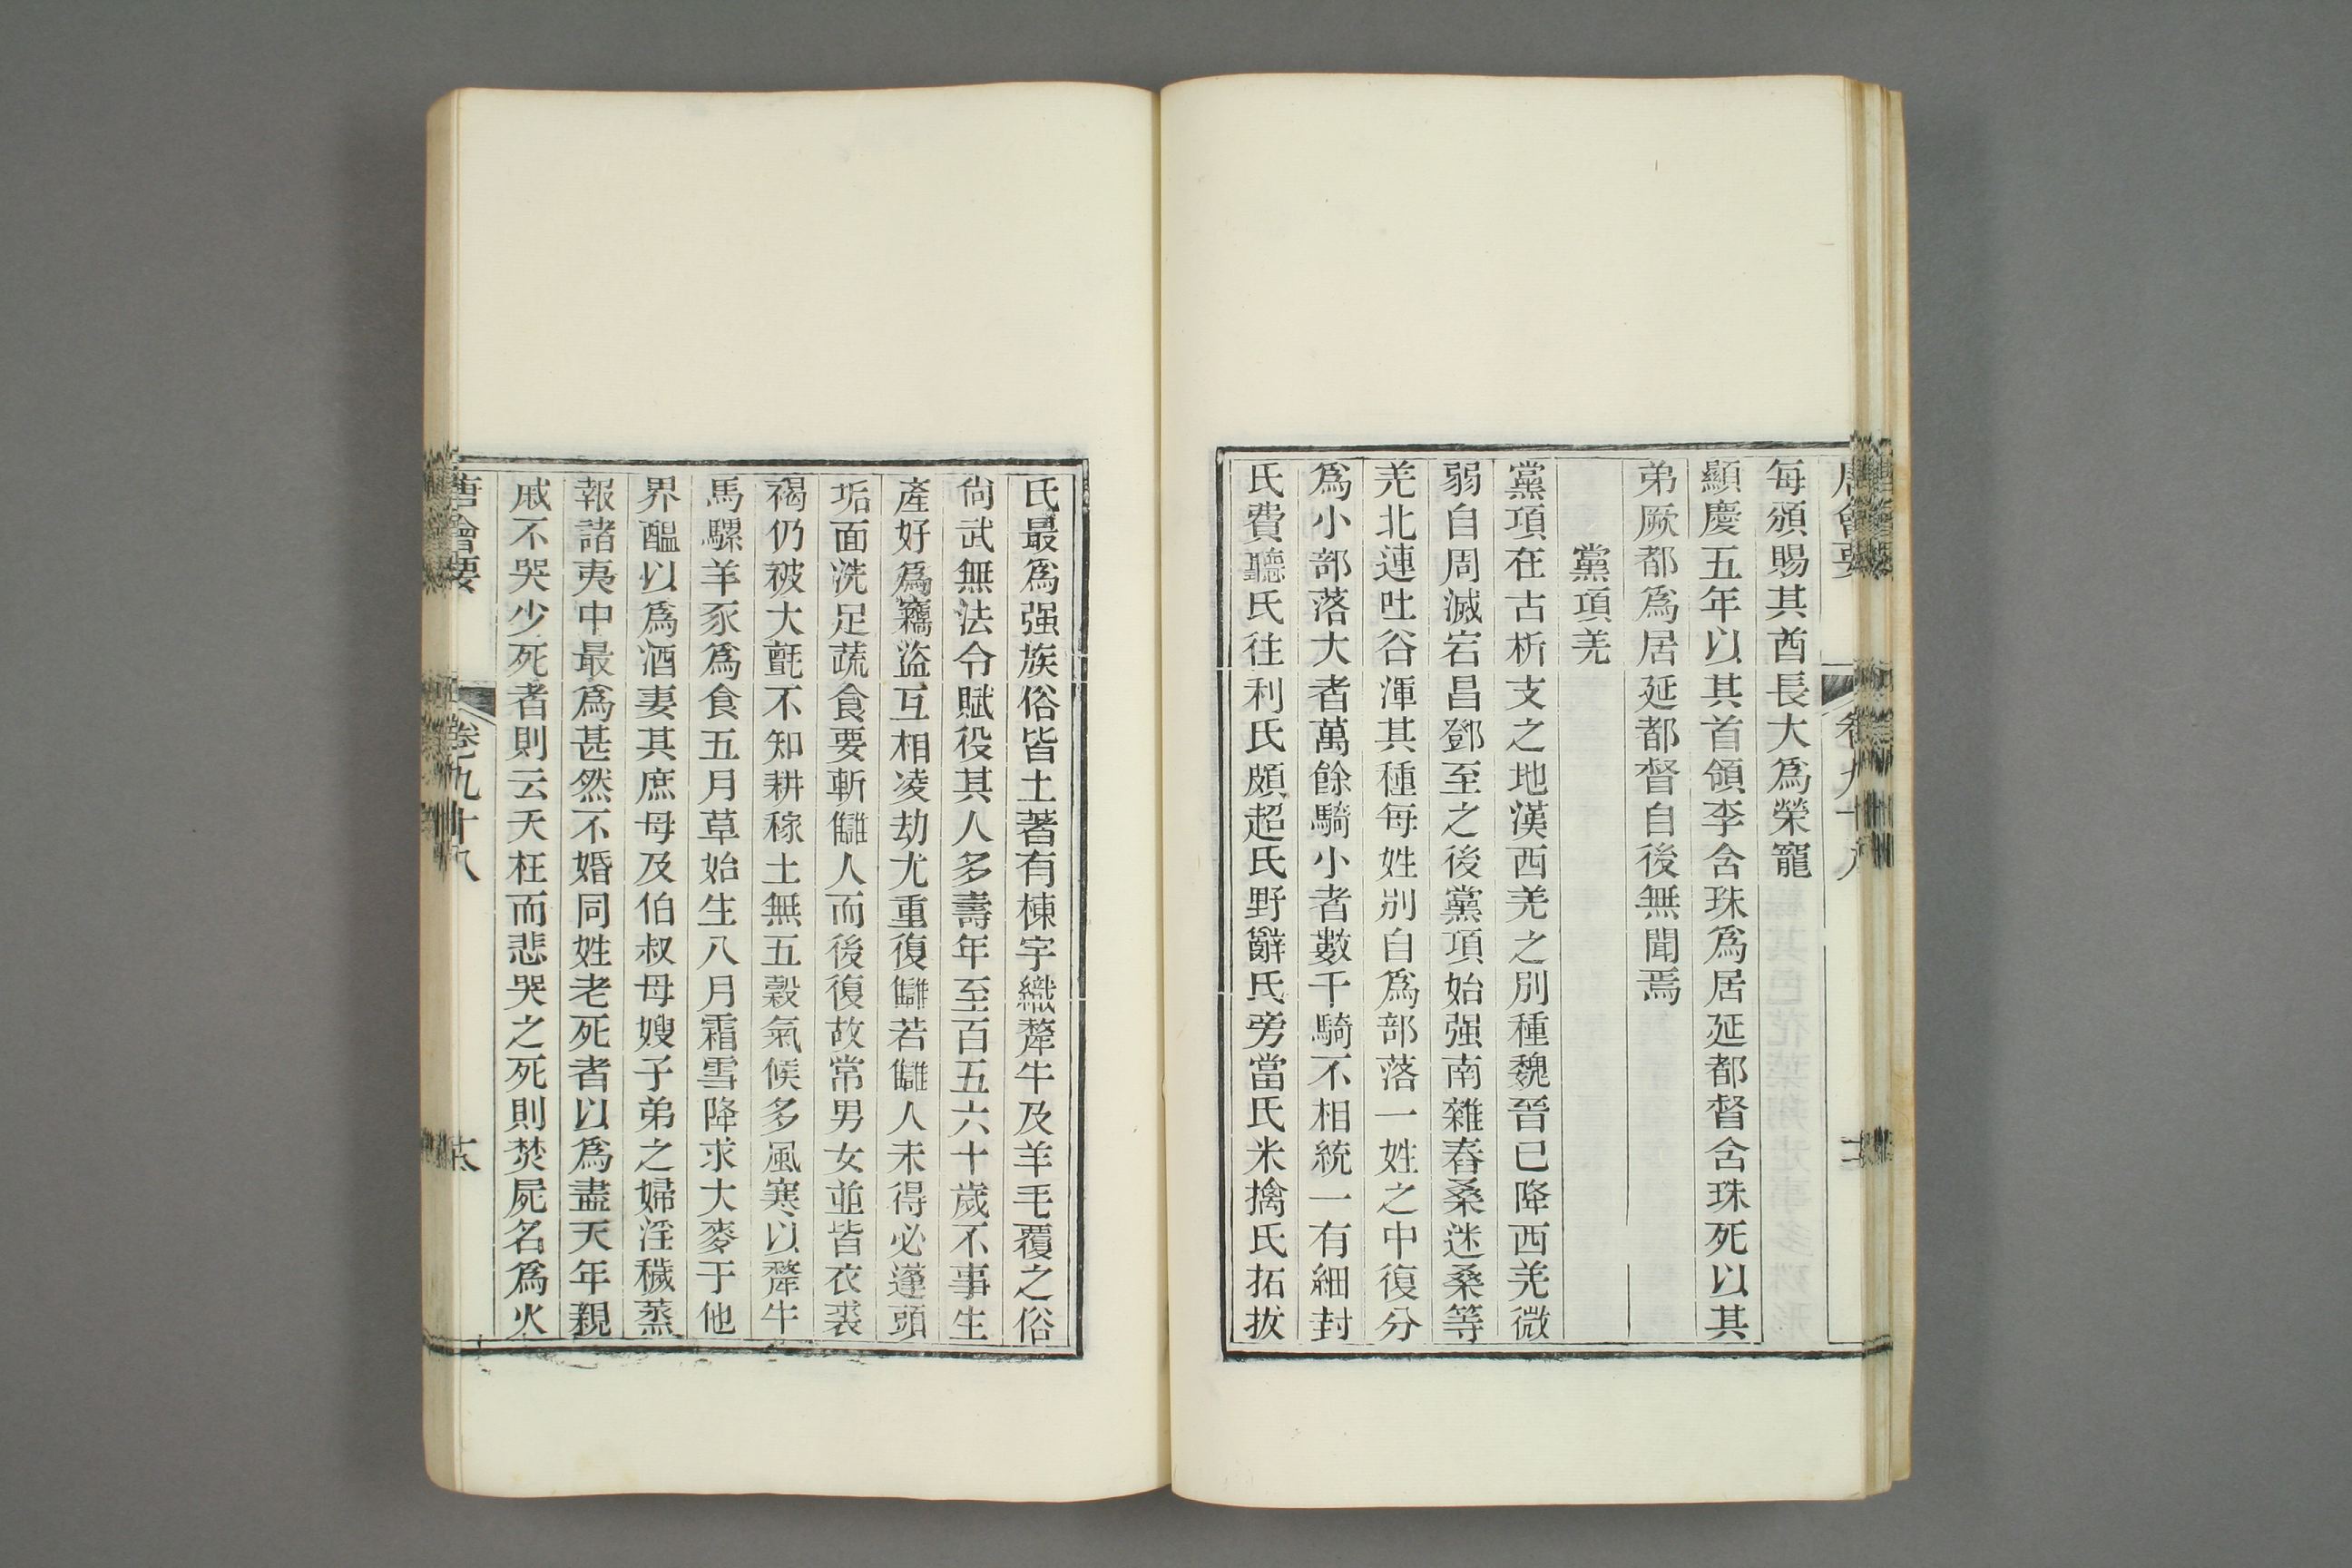 每頒賜其酋長大爲榮寵
顯慶五年以其首領李含珠爲居延都督含珠死以其
弟厥都爲居延都督自後無聞焉
黨項羌
黨項在古析支之地漢西羌之別種魏晉已降西羌微
弱自周滅宕昌鄧至之後黨項始强南雜舂桑迷桑等
羌北連吐谷渾其種每姓別自爲部落一姓之中復分
爲小部落大者萬餘騎小者數千騎不相統一有細封
氏費聽氏往利氏頗超氏野辭氏旁當氏米擒氏拓拔
氏最爲强族俗皆土著有棟宇織犛牛及羊毛覆之俗
尙武無法令賦役其人多壽年至百五六十歲不事生
產好爲竊盜互相凌劫尤重復讎若讎人未得必蓬頭
垢面洗足蔬食要斬讎人而後復故常男女並皆衣裘
褐仍被大氈不知耕稼土無五穀氣候多風寒以犛牛
馬騾羊豕爲食五月草始生八月霜雪降求大麥于他
界醞以爲酒妻其庶母及伯叔母嫂子弟之婦淫穢蒸
報諸夷中最爲甚然不婚同姓老死者以爲盡天年親
戚不哭少死者則云夭枉而悲哭之死則焚屍名爲火
唐會要 卷九十八